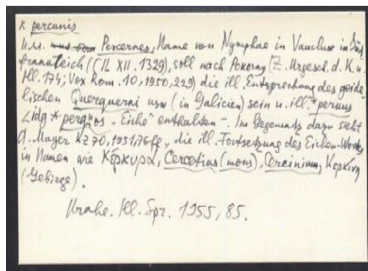 * percunis
u.u. Percernes, Name von Nymphae in Vaucluse in Süd-
frankreich (CIL XII. 1329), soll nach Pokorny (Z. Urgesch. d. K. u.
Ill. 174; Vox Rom. 10, 1950, 229) die ill. Entsprechung des goide-
lischen Querquerni usw (in Galicien) sein u. ill. *perqus
< idg *perqus „Eiche" enthalten -. Im Gegensatz dazu sieht
A. Mayer KZ 70, 1951, 76ff., die ill. Fortsetzung des Eichen-Worts
in Namen wie Κέρκυρα, Cercetius (mons), Cercinium, Κερκίνη
(Gebirge).
Krahe. Ill. Spr. 1955, 85.